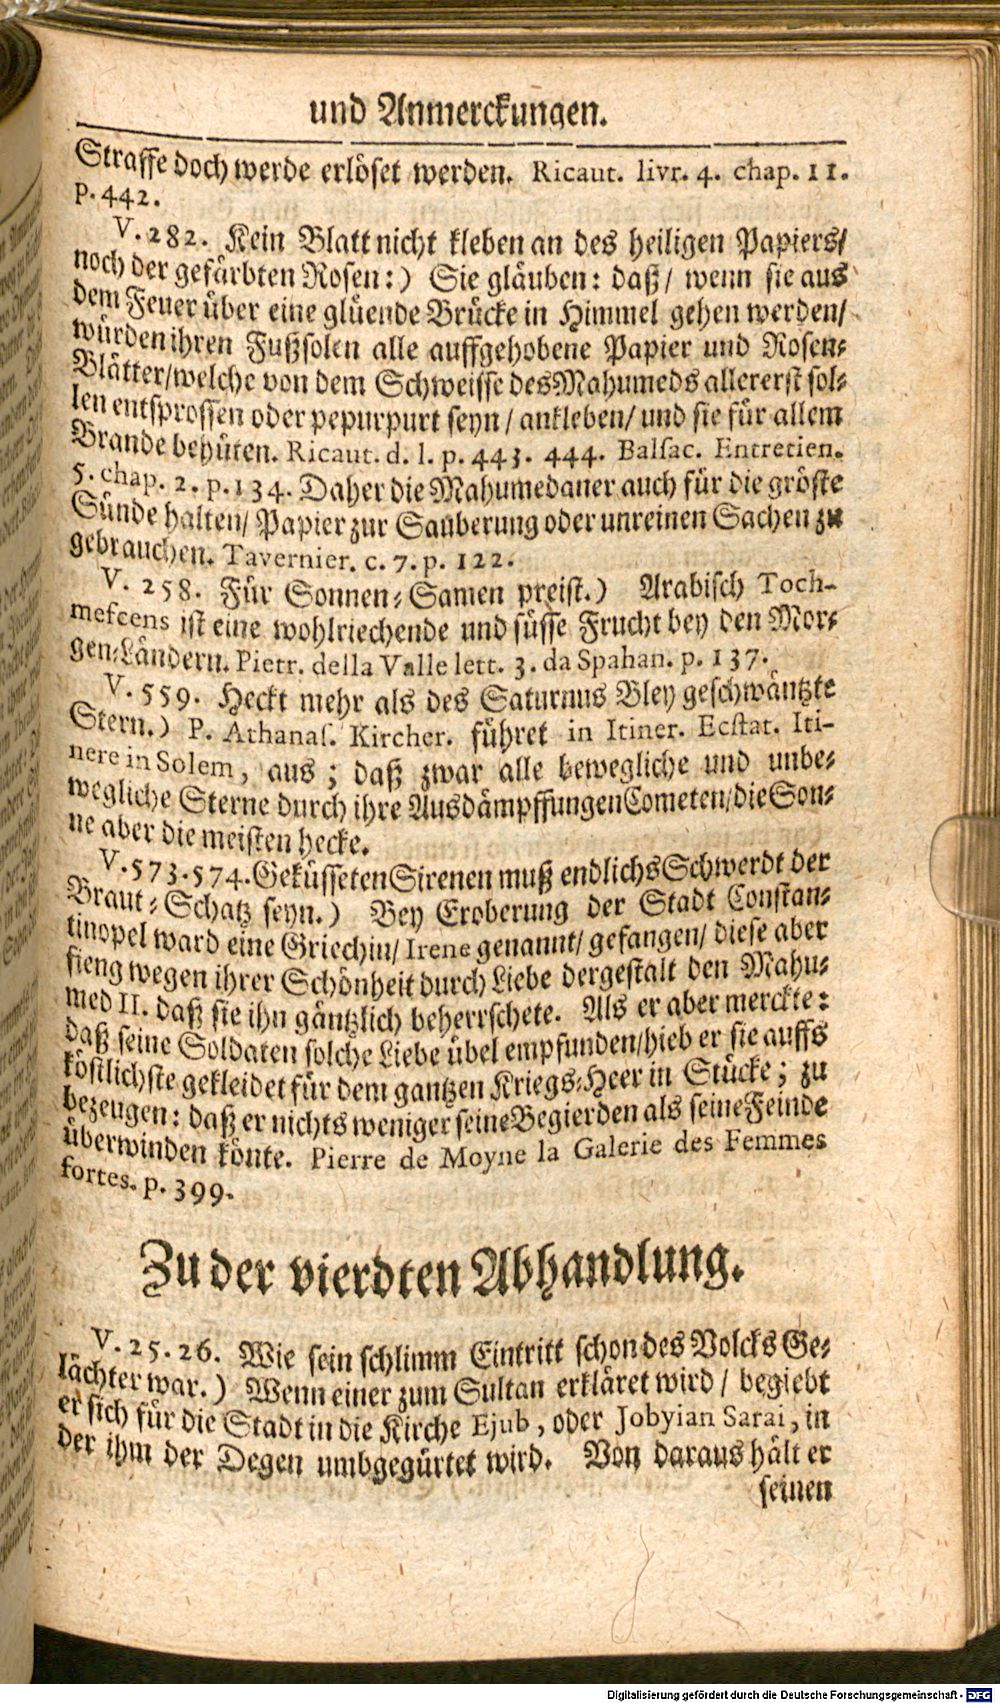 und Anmerckungen.
Straffe doch werde erlöset werden. Ricaut. livr. 4. chap. 11.
p. 442.
V. 282. Kein Blatt nicht kleben an des heiligen Papiers/
noch der gefärbten Rosen:) Sie gläuben: daß/ wenn sie aus
dem Feuer über eine glüende Brücke in Himmel gehen werden/
würden ihren Fußsolen alle auffgehobene Papier und Rosen-
Blätter/welche von dem Schweisse des Mahumeds allererst sol-
len entsprossen oder pepurpurt seyn/ ankleben/ und sie für allem
Brande behüten. Ricaut. d. l. p. 443. 444. Balsac. Entretien.
5. chap. 2. p. 134. Daher die Mahumedaner auch für die gröste
Sünde halten/ Papier zur Säuberung oder unreinen Sachen zu
gebrauchen. Tavernier. c. 7. p. 122.
V. 258. Für Sonnen-Samen preist.) Arabisch Toch-
mefcens ist eine wohlriechende und süsse Frucht bey den Mor-
gen-Ländern. Pietr. della Valle lett. 3. da Spahan. p. 137.
V. 559. Heckt mehr als des Saturnus Bley geschwäntzte
Stern.) P. Athanas. Kircher. führet in Itiner. Ecstat. Iti-
nere in Solem, aus; daß zwar alle bewegliche und unbe-
wegliche Sterne durch ihre Ausdämpffungen Cometen/die Son-
ne aber die meisten hecke.
V. 573. 574. Geküsseten Sirenen muß endlichs Schwerdt der
Braut-Schatz seyn.) Bey Eroberung der Stadt Constan-
tinopel ward eine Griechin/ Irene genannt/ gefangen/ diese aber
fieng wegen ihrer Schönheit durch Liebe dergestalt den Mahu-
med II. daß sie ihn gäntzlich beherrschete. Als er aber merckte:
daß seine Soldaten solche Liebe übel empfunden/hieb er sie auffs
köstlichste gekleidet für dem gantzen Kriegs-Heer in Stücke; zu
bezeugen: daß er nichts weniger seine Begierden als seine Feinde
überwinden könte. Pierre de Moyne la Galerie des Femmes
fortes. p. 399.
Zu der vierdten Abhandlung.
V. 25. 26. Wie sein schlimm Eintritt schon des Volcks Ge-
lächter war.) Wenn einer zum Sultan erkläret wird/ begiebt
er sich für die Stadt in die Kirche Ejub, oder Jobyian Sarai, in
der ihm der Degen umbgegürtet wird. Von daraus hält er
seinen
Digitalisierung gefördert durch die Deutsche Forschungsgemeinschaft - DFG